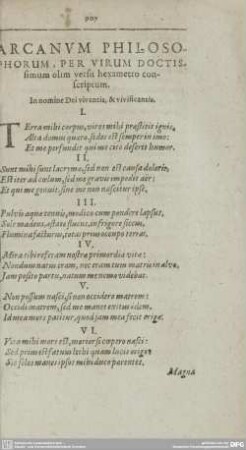 ARCANVM PHILOSO-
PHORUM, PER VIRUM DOCTIS-
simum olim versu hexametro con-
scriptum.
In nomine Dei viventis, & vivificantis.
I.
TErra mihi corpus, vires mihi præstitit ignis,
Alta domus quæro, sedes est semper in imo:
Et me perfundit qui me cito deserit humor.
II.
Sunt mihi sunt lacrymæ, sed non est causa doloris,
Est iter ad cœlum, sed me gravis impedit aër:
Et qui me genuit, sine me non nascitur ipse.
III.
Pulvis aquæ tenuis, modico cum pondere lapsus,
Sole madens, æstate fluens, in frigore siccus,
Flumina facturus, totas prius occupo terras.
IV.
Mira tibi referam nostræ primordia vitæ:
Nondum natus eram, nec eram tum matris in alvo,
Jam posito partu, natum me nemo videbat.
V.
Non possum nasci, si non occidero matrem:
Occidi matrem, sed me manet exitus idem.
Id mea mors patitur, quod jam mea fecit origo.
VI.
Vita mihi mors est, morior si cœpero nasci:
Sed prius est fatum lethi quàm lucis origo:
Sic solus manes ipsos mihi dico parentes.
Magna